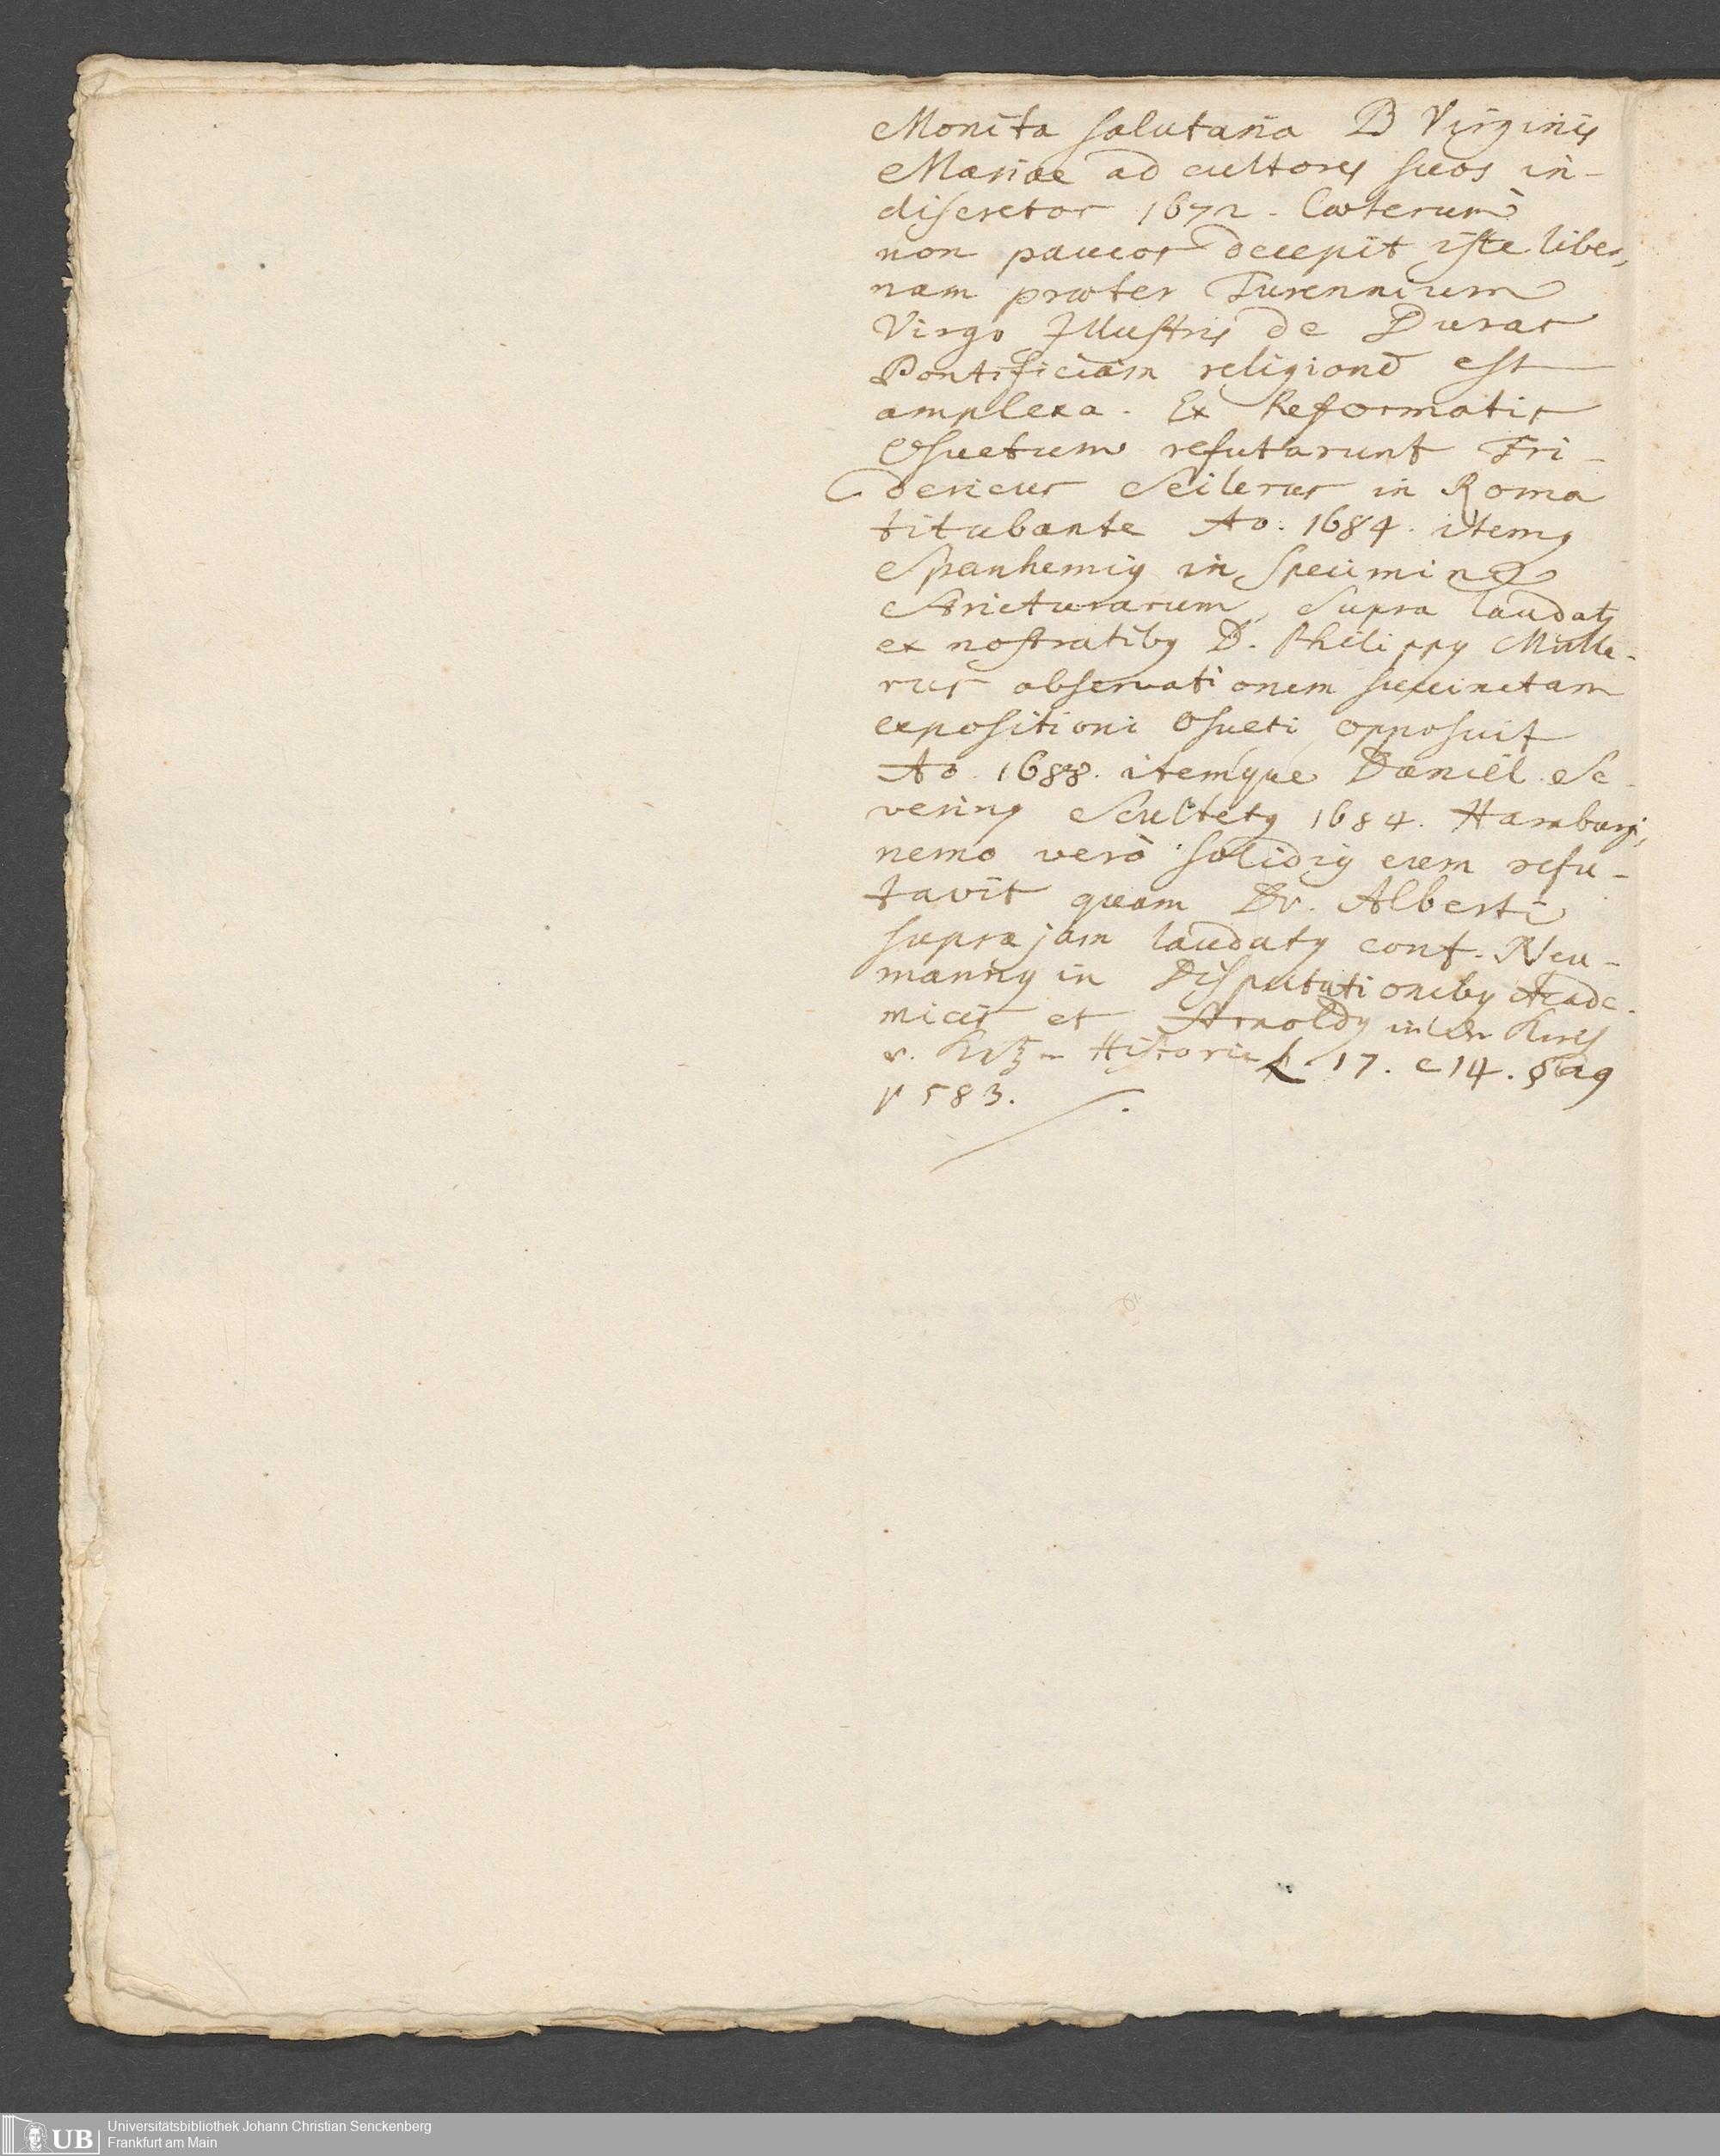 Monita salutaria B Virginis
Mariae ad cultores suos in-
discretos 1672. Caeterum
non paucos decepit iste liber,
nam praeter Turennium
Virgo Illustris de Duras
Pontificiam religionē est
amplexa. Ex Reformatis
Osuetum refutarunt Fri-
dericus Seilerus in Roma
titubante Ao. 1684. itemq
Spanhemiꝰ in Specimine
Stricturarum, Supra laudatꝰ
ex nostratibꝰ D. Philippꝰ Mülle-
rus observationem succinctam
expositioni Osueti opposuit
Ao. 1688. itemque Daniel Se-
verinꝰ Scultetꝰ 1684. Hamburgi,
nemo verò solidiꝰ eum refu-
tavit quam Dr. Alberti
supra jam laudatꝰ conf. Neu-
mannꝰ in Disputationibꝰ Acade-
micis et Arnoldꝰ in der Kirch
v. Kez- Historie L 17. c 14. §
p 583.
Universitätsbibliothek Johann Christian Senckenberg
Frankfurt am Main
UB